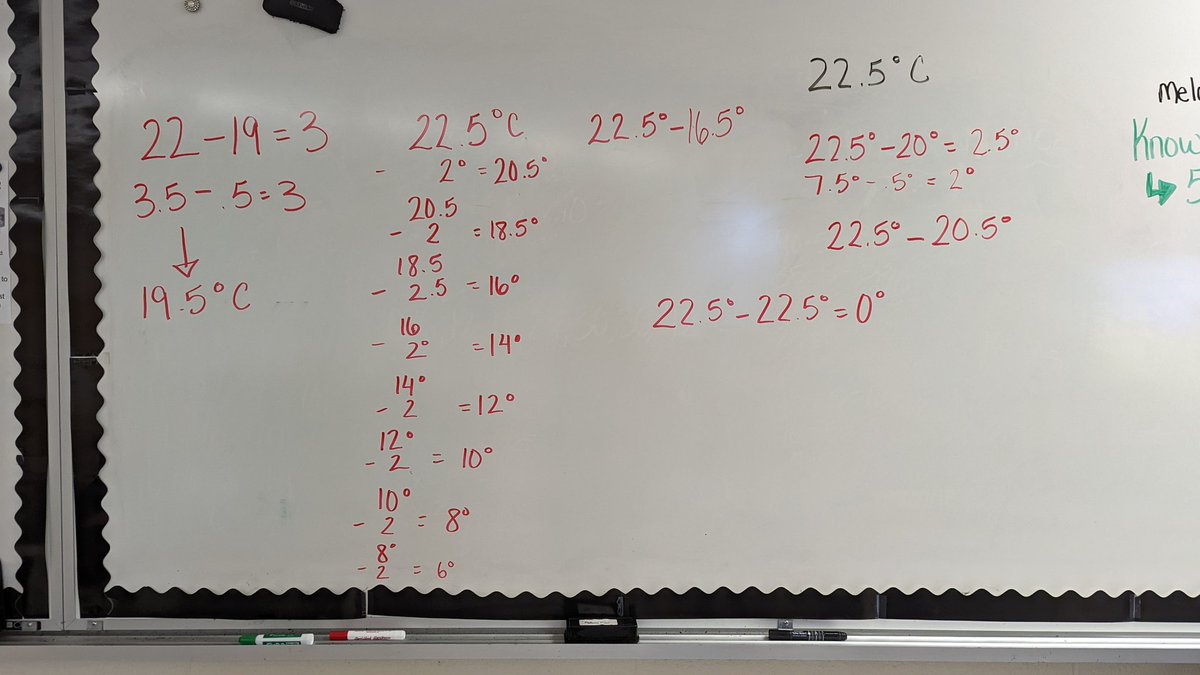 22 - 19 = 3
3.5 - .5 = 3
19.5°C
22.5°C
- 2° = 20.5°
20.5
- 2 = 18.5°
18.5
- 2.5 = 16°
16
- 2° = 14°
14°
- 2 = 12°
12°
- 2 = 10°
10°
- 2 = 8°
8°
- 2 = 6°
22.5° - 16.5°
22.5°C
22.5° - 20° = 2.5°
7.5° - .5° = 2°
22.5° - 20.5°
22.5° - 22.5° = 0°
Know
5